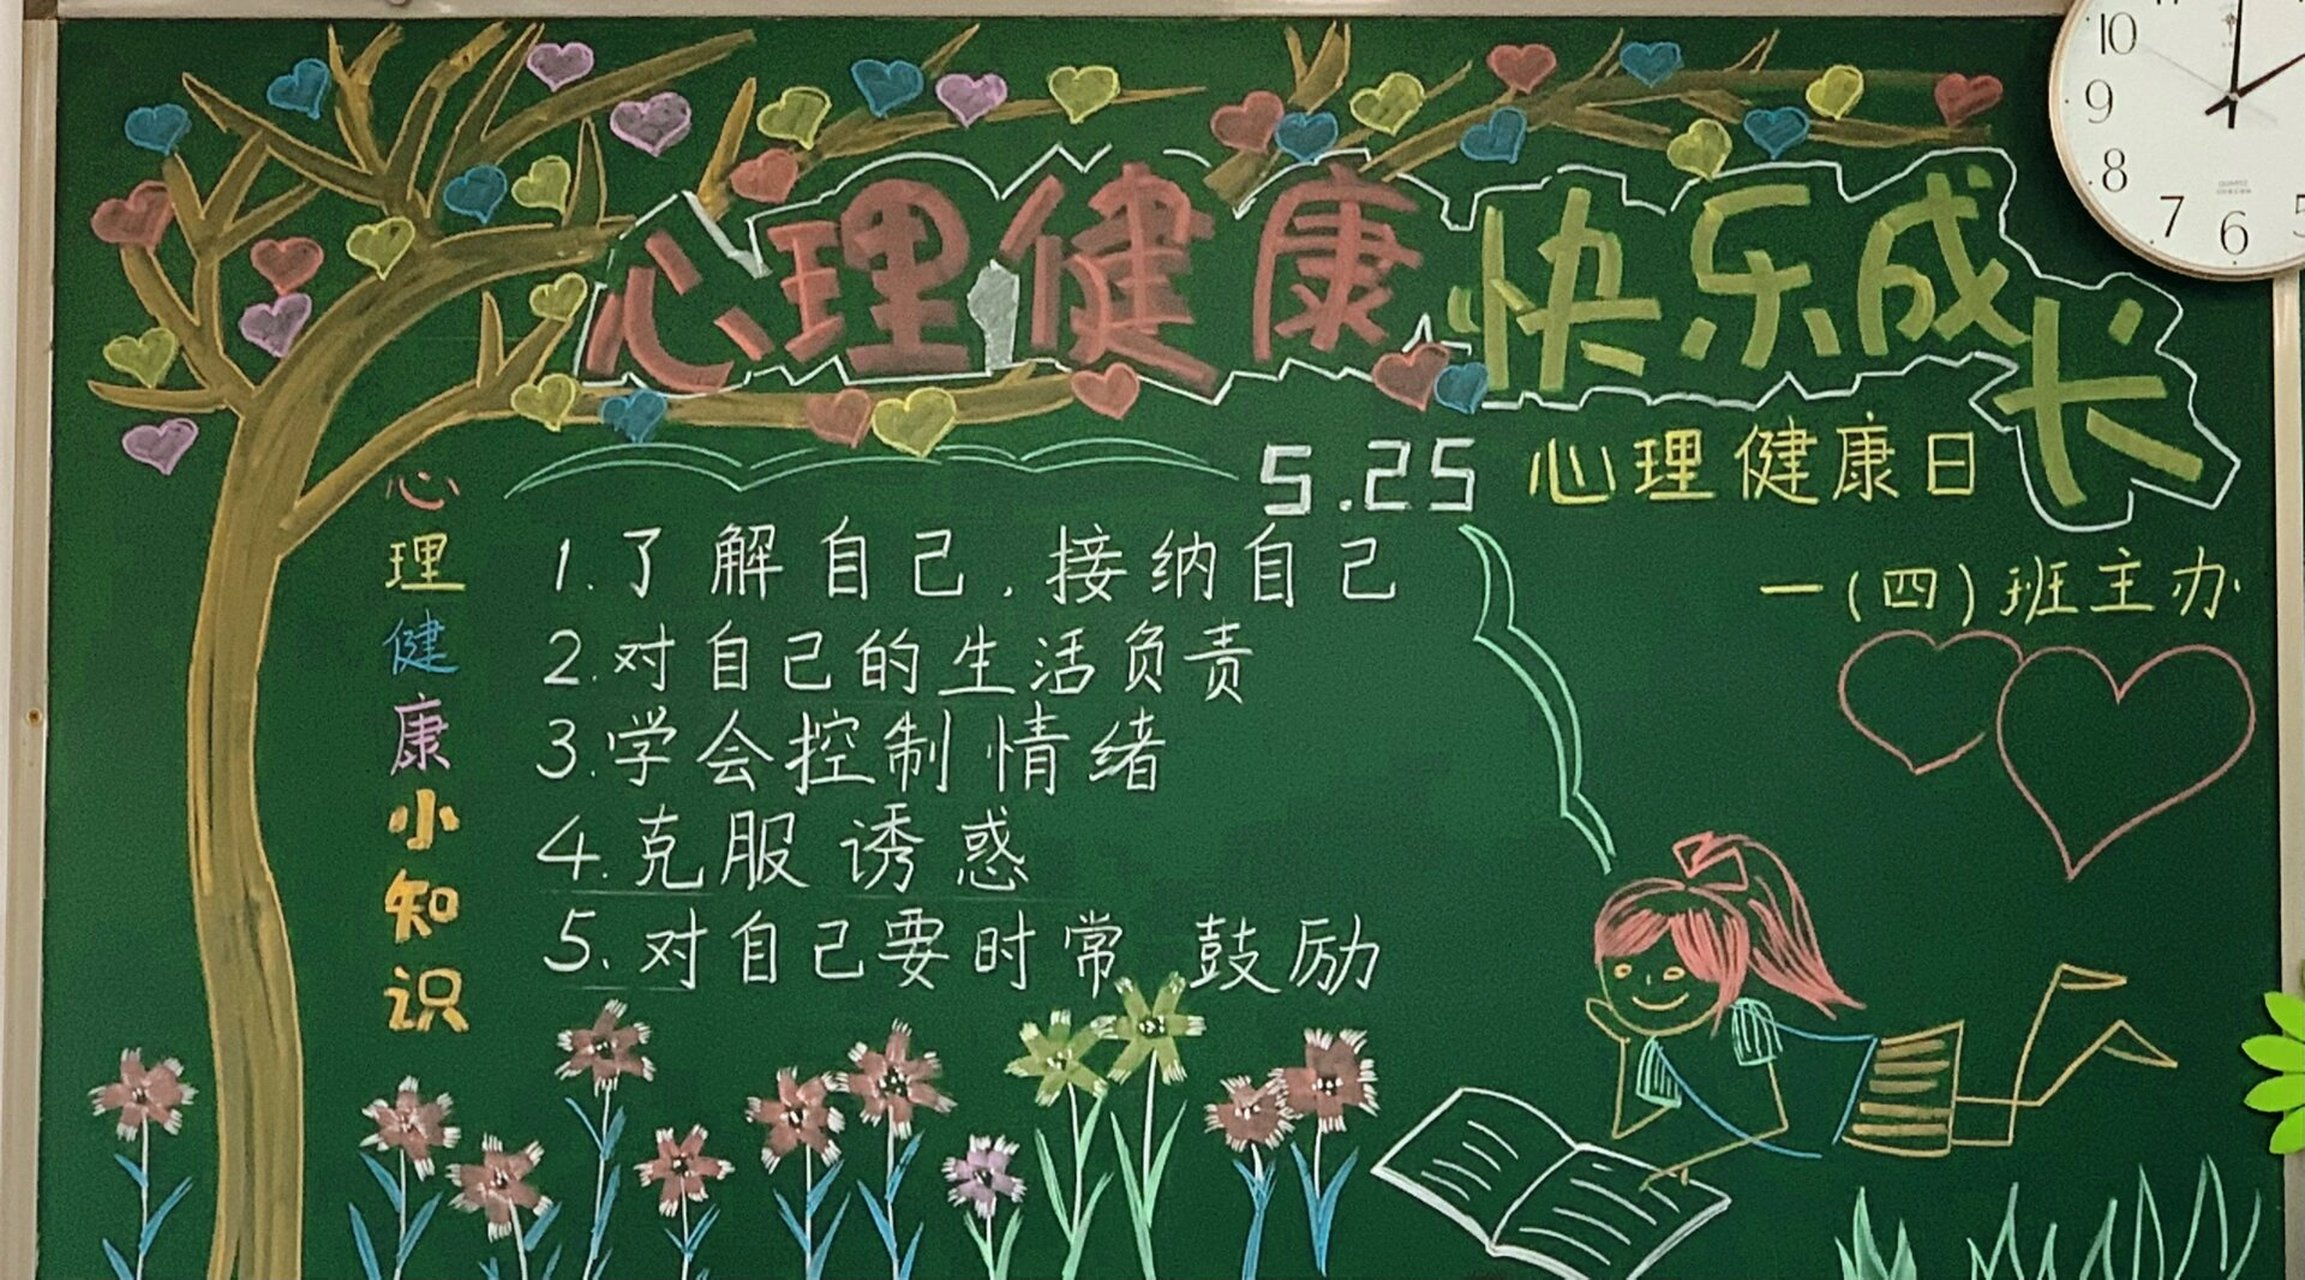 心理健康快乐成长
5.25 心理健康日
一(四)班主办
心理健康小知识
1.了解自己,接纳自己
2.对自己的生活负责
3.学会控制情绪
4.克服诱惑
5.对自己要时常鼓励
10
9
8
7
6
5